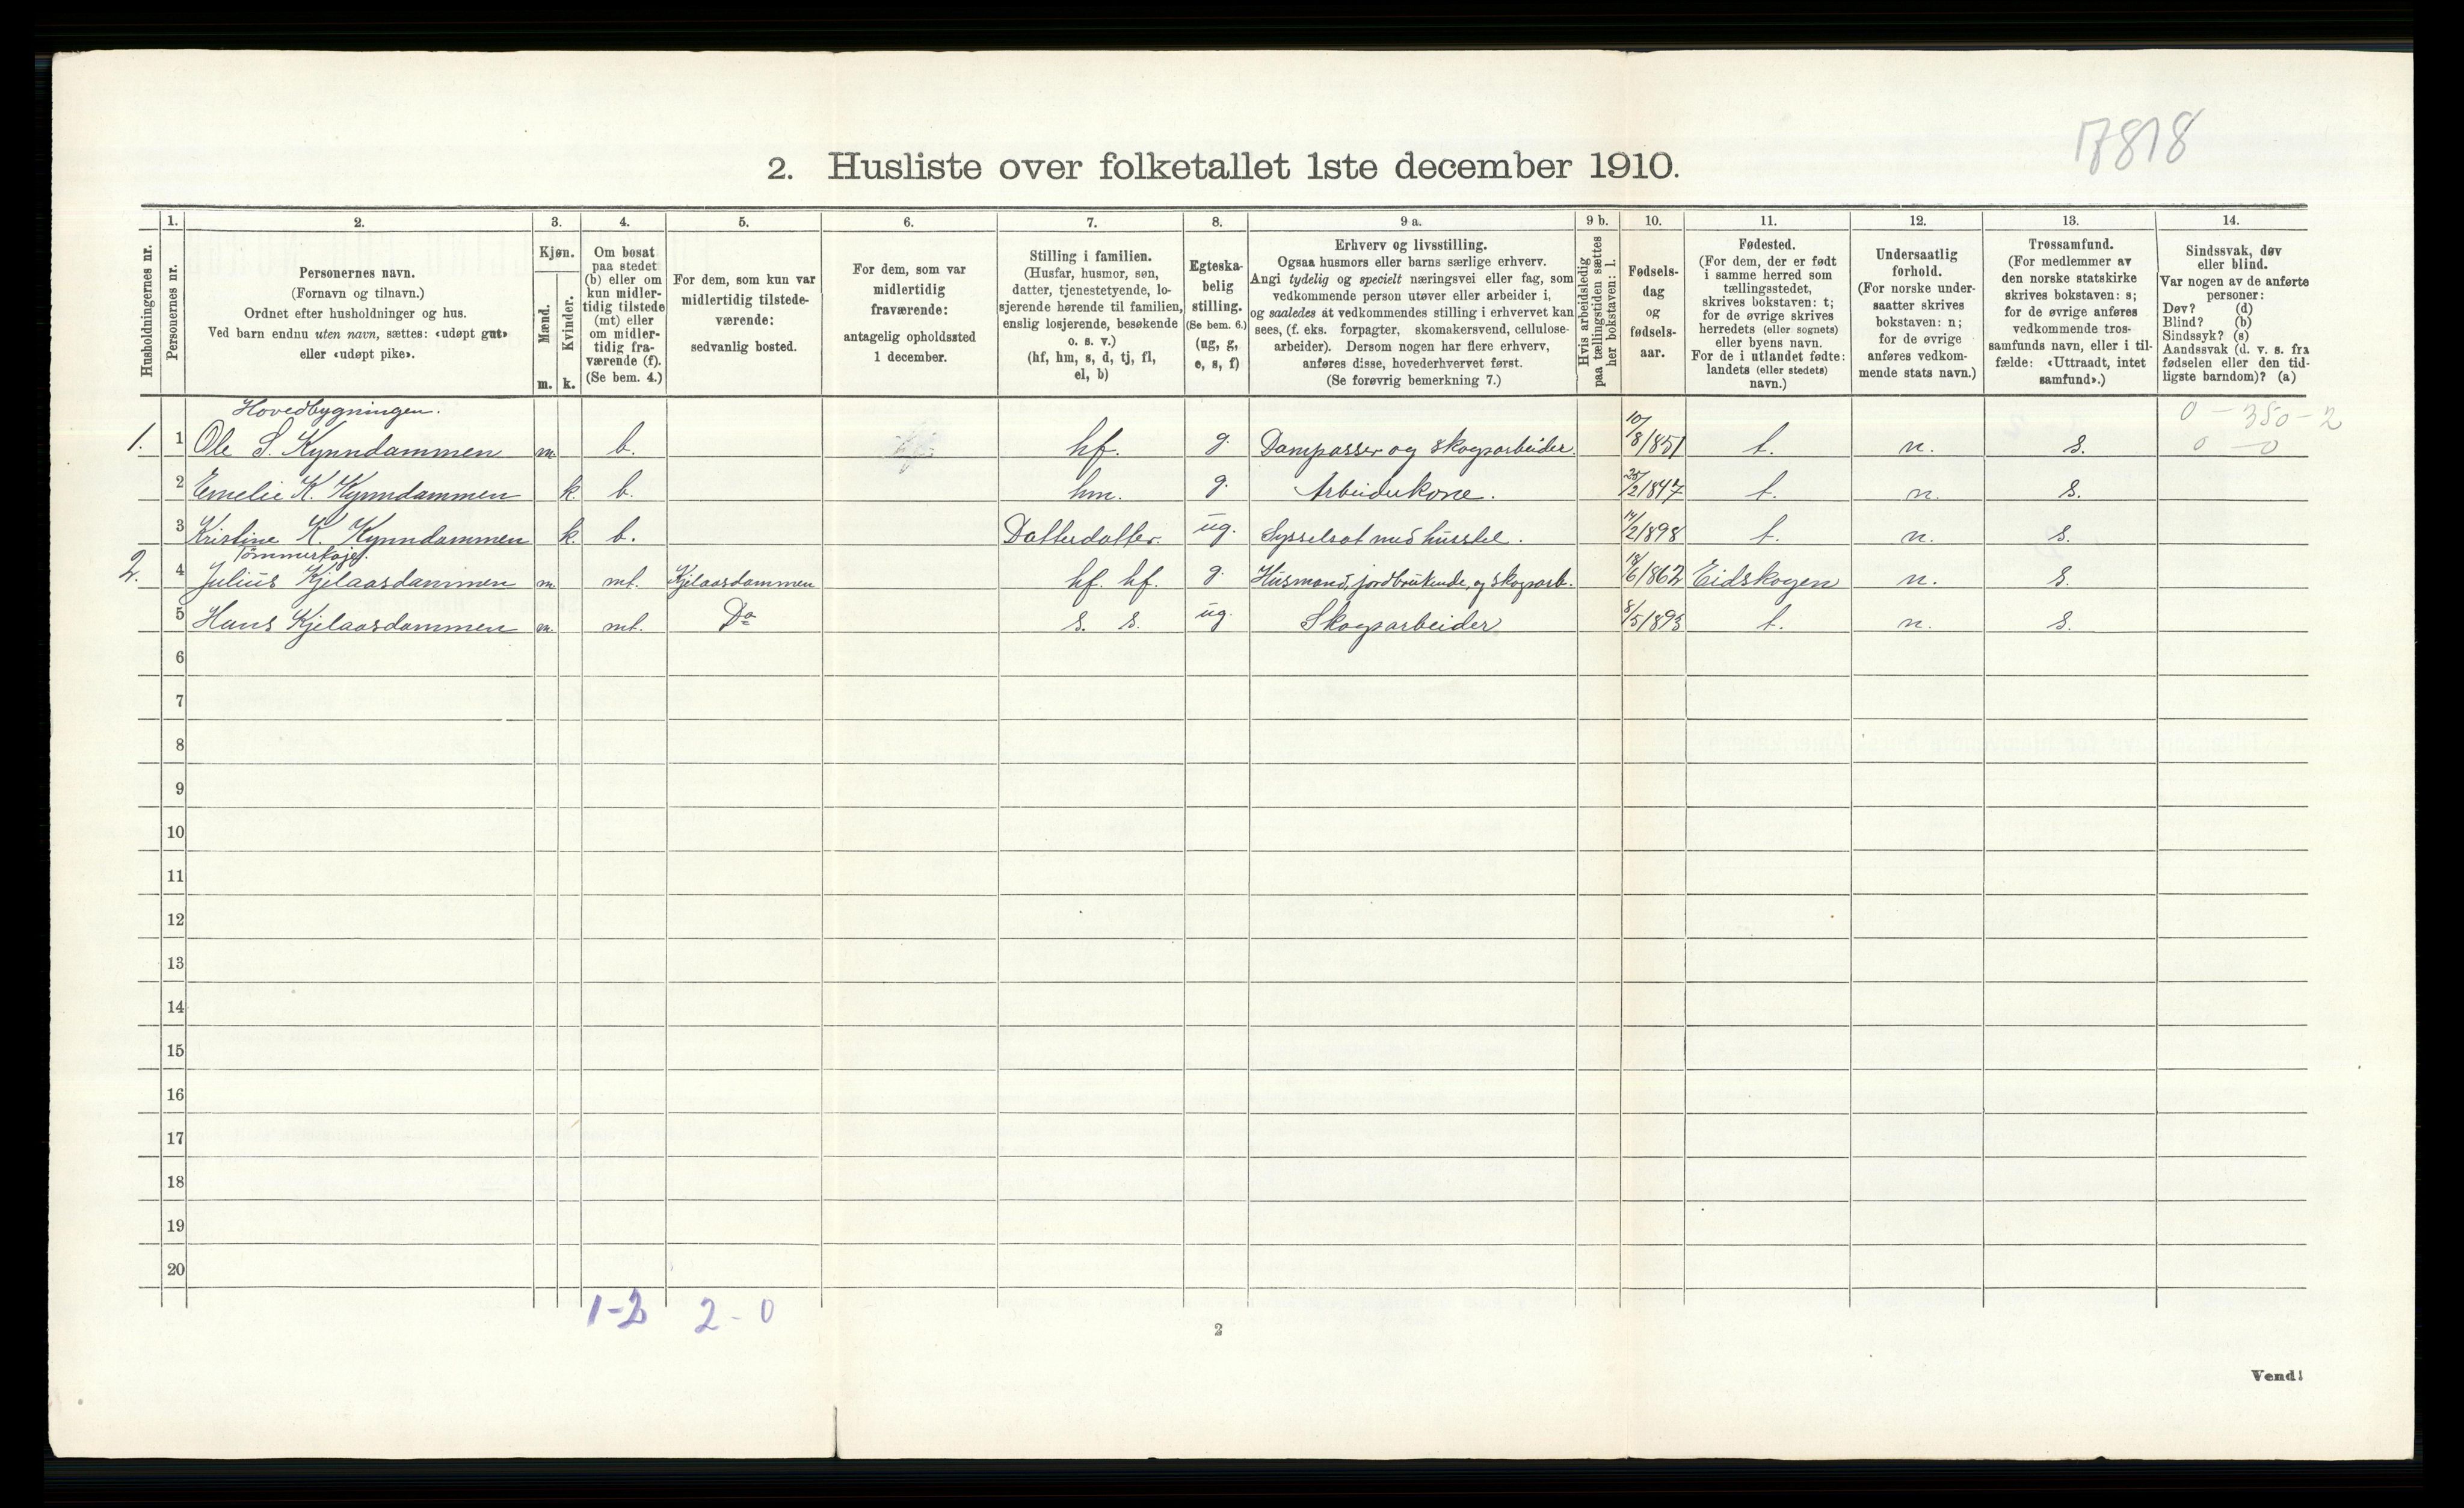 17818
2. Husliste over folketallet 1ste december 1910.
Husholdningernes nr.
1.
Personernes nr.
2.
Personernes navn.
(Fornavn og tilnavn.)
Ordnet efter husholdninger og hus.
Ved barn endnu uten navn, sættes: «udøpt gut»
eller «udøpt pike».
3.
Kjøn.
Mænd.
m.
Kvinder.
k.
4.
Om bosat
paa stedet
(b) eller om
kun midler-
tidig tilstede
(mt) eller
om midler-
tidig fra-
værende (f).
(Se bem. 4.)
5.
For dem, som kun var
midlertidig tilstede-
værende:
sedvanlig bosted.
6.
For dem, som var
midlertidig
fraværende:
antagelig opholdssted
1 december.
7.
Stilling i familien.
(Husfar, husmor, søn,
datter, tjenestetyende, lo-
sjerende hørende til familien,
enslig losjerende, besøkende
o. s. v.)
(hf, hm, s, d, tj, fl,
el, b)
8.
Egteska-
belig
stilling.
(Se bem. 6.)
(ug, g,
e, s, f)
9 a.
Erhverv og livsstilling.
Ogsaa husmors eller barns særlige erhverv.
Angi tydelig og specielt næringsvei eller fag, som
vedkommende person utøver eller arbeider i,
og saaledes at vedkommendes stilling i erhvervet kan
sees, (f. eks. forpagter, skomakersvend, cellulose-
arbeider). Dersom nogen har flere erhverv,
anføres disse, hovederhvervet først.
(Se forøvrig bemerkning 7.)
9 b.
Hvis arbeidsledig
paa tællingstiden sættes
her bokstaven: l.
10.
Fødsels-
dag
og
fødsels-
aar.
11.
Fødested.
(For dem, der er født
i samme herred som
tællingsstedet,
skrives bokstaven: t;
for de øvrige skrives
herredets (eller sognets)
eller byens navn.
For de i utlandet fødte:
landets (eller stedets)
navn.)
12.
Undersaatlig
forhold.
(For norske under-
saatter skrives
bokstaven: n;
for de øvrige
anføres vedkom-
mende stats navn.)
13.
Trossamfund.
(For medlemmer av
den norske statskirke
skrives bokstaven: s;
for de øvrige anføres
vedkommende tros-
samfunds navn, eller i til-
fælde: «Uttraadt, intet
samfund».)
14.
Sindssvak, døv
eller blind.
Var nogen av de anførte
personer:
Døv? (d)
Blind? (b)
Sindssyk? (s)
Aandssvak (d. v. s. fra
fødselen eller den tid-
ligste barndom)? (a)
Hovedbygningen.
0 - 350 - 2
1. 1 Ole S. Kynndammen m. b. hf. g. Dampasser og skogsarbeider 10/8 1851 t. n. s. 0 - 0
2 Emelie K. Kynndammen k. b. hm. g. Arbeiderkone. 25/2 1847 t. n. s.
3 Kristine K. Kynndammen k. b. Datterdatter. ug. Sysselsat med husstel. 14/2 1898 t. n. s.
Tømmerkoje.
2. 4 Julius Kjelaasdammen m. mt. Kjelaasdammen hf. hf. g. Husmand, jordbrukende, og skogsarb. 18/6 1862 Eidskogen n. s.
5 Hans Kjelaasdammen m. mt. Do s. s. ug. Skogsarbeider 8/5 1893 t. n. s.
6
7
8
9
10
11
12
13
14
15
16
17
18
19
20
1-2 2-0
2
Vend!